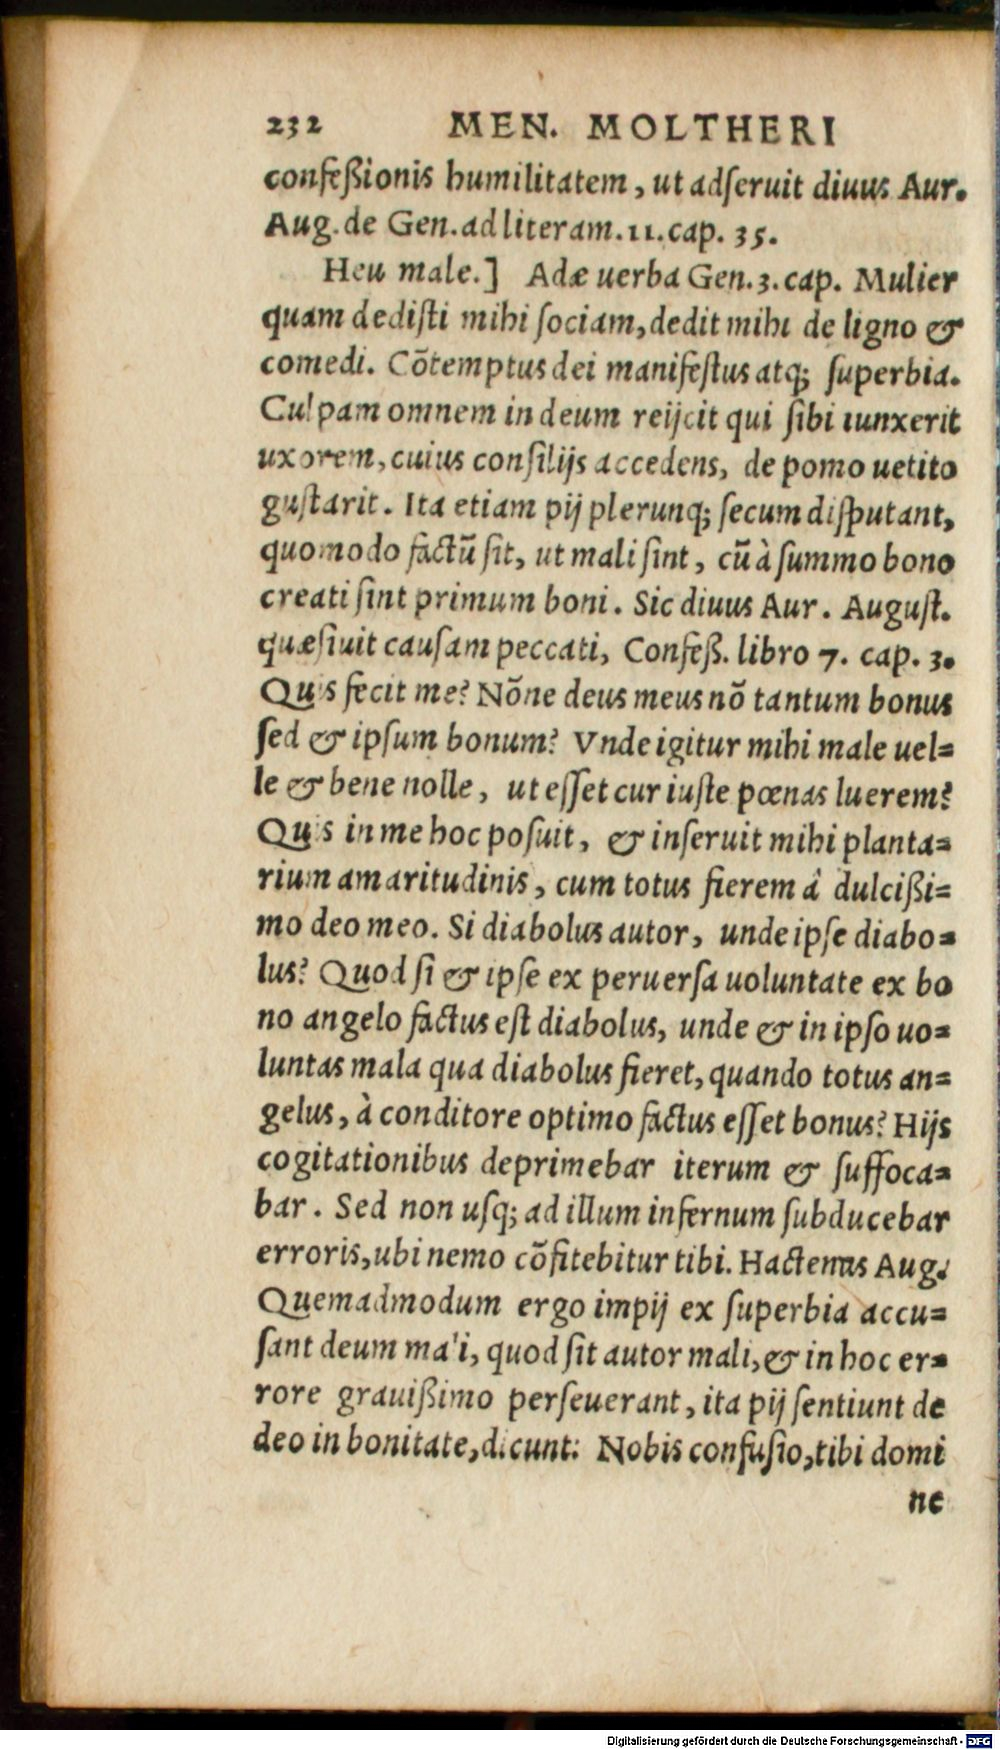 232 MEN. MOLTHERI
confeßionis humilitatem, ut adſeruit diuus Aur.
Aug. de Gen. ad literam. 11. cap. 35.
Heu male.] Adæ uerba Gen. 3. cap. Mulier
quam dediſti mihi ſociam, dedit mihi de ligno &
comedi. Cõtemptus dei manifeſtus atq; ſuperbia.
Culpam omnem in deum reijcit qui ſibi iunxerit
uxorem, cuius conſilijs accedens, de pomo uetito
guſtarit. Ita etiam pij plerunq; ſecum diſputant,
quomodo factũ ſit, ut mali ſint, cũ à ſummo bono
creati ſint primum boni. Sic diuus Aur. Auguſt.
quæſiuit cauſam peccati, Confeß. libro 7. cap. 3.
Quis fecit me? Nõne deus meus nõ tantum bonus
ſed & ipſum bonum? Vnde igitur mihi male uel=
le & bene nolle, ut eſſet cur iuſte pœnas luerem?
Quis in me hoc poſuit, & inſeruit mihi planta=
rium amaritudinis, cum totus fierem â dulcißi=
mo deo meo. Si diabolus autor, unde ipſe diabo=
lus? Quod ſi & ipſe ex peruerſa uoluntate ex bo
no angelo factus eſt diabolus, unde & in ipſo uo=
luntas mala qua diabolus fieret, quando totus an=
gelus, à conditore optimo factus eſſet bonus? Hijs
cogitationibus deprimebar iterum & ſuffoca=
bar. Sed non uſq; ad illum infernum ſubducebar
erroris, ubi nemo cõfitebitur tibi. Hactenus Aug.
Quemadmodum ergo impij ex ſuperbia accu=
ſant deum mali, quod ſit autor mali, & in hoc er=
rore grauißimo perſeuerant, ita pij ſentiunt de
deo in bonitate, dicunt: Nobis confuſio, tibi domi
ne
Digitalisierung gefördert durch die Deutsche Forschungsgemeinschaft - DFG